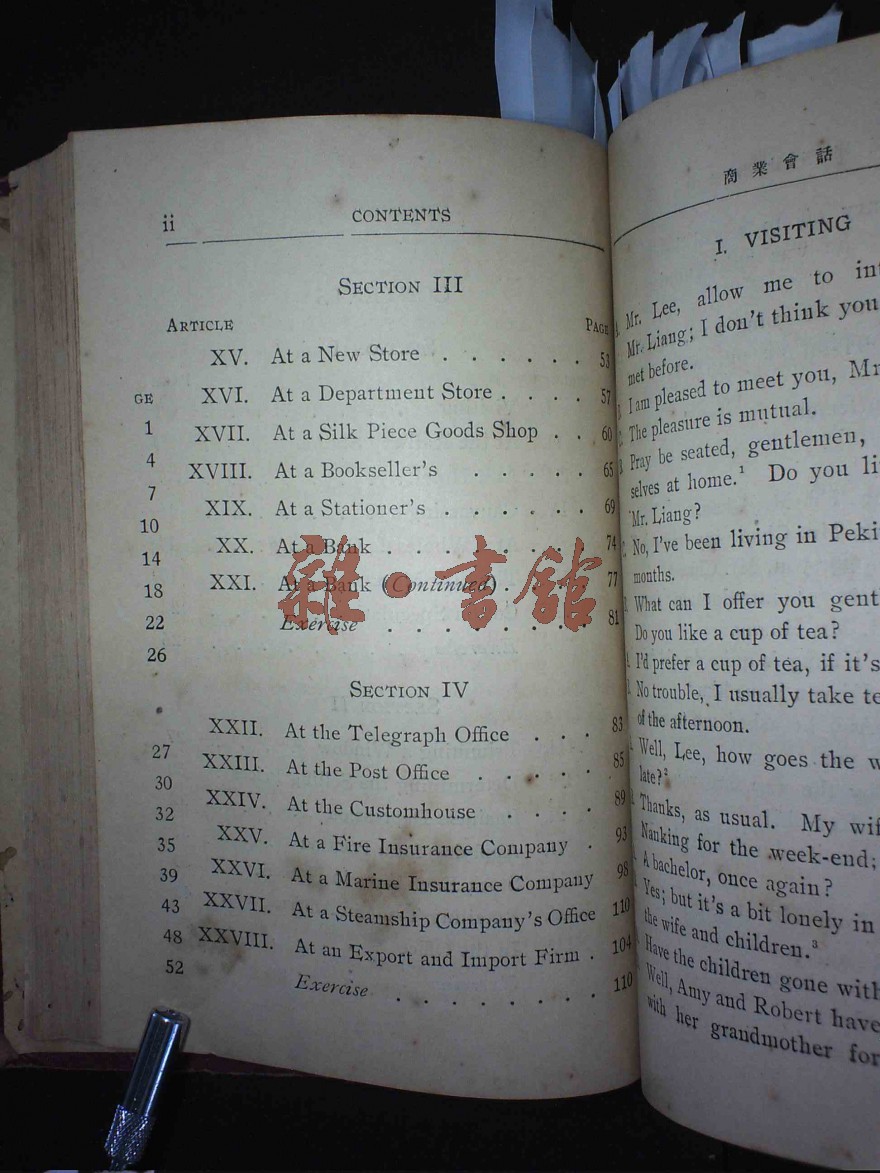 ii CONTENTS
SECTION III
ARTICLE PAGE
XV. At a New Store . . . . . . 53
XVI. At a Department Store . . . . 57
XVII. At a Silk Piece Goods Shop . . 60
XVIII. At a Bookseller's . . . . . 65
XIX. At a Stationer's . . . . . . 69
XX. At a Bank . . . . . . . . 74
XXI. At a Bank (Continued) . . . . 77
Exercise . . . . . . . . 81
SECTION IV
XXII. At the Telegraph Office . . . 83
XXIII. At the Post Office . . . . . 85
XXIV. At the Customhouse . . . . 89
XXV. At a Fire Insurance Company . 93
XXVI. At a Marine Insurance Company 98
XXVII. At a Steamship Company's Office 110
XXVIII. At an Export and Import Firm . 104
Exercise . . . . . . . . 110
GE
1
4
7
10
14
18
22
26
27
30
32
35
39
43
48
52
雜·書館
商業會話
I. VISITING
Mr. Lee, allow me to
Mr. Liang; I don't think you
met before.
I am pleased to meet you,
The pleasure is mutual.
Pray be seated, gentlemen,
selves at home.¹ Do you
Mr. Liang?
No, I've been living in
months.
What can I offer you
Do you like a cup of tea?
I'd prefer a cup of tea, if it's
No trouble, I usually take
of the afternoon.
Well, Lee, how goes the
late?²
Thanks, as usual. My
Nanking for the week-end;
A bachelor, once again?
Yes; but it's a bit lonely in
the wife and children.³
Have the children gone
Well, Amy and Robert have
with her grandmother for